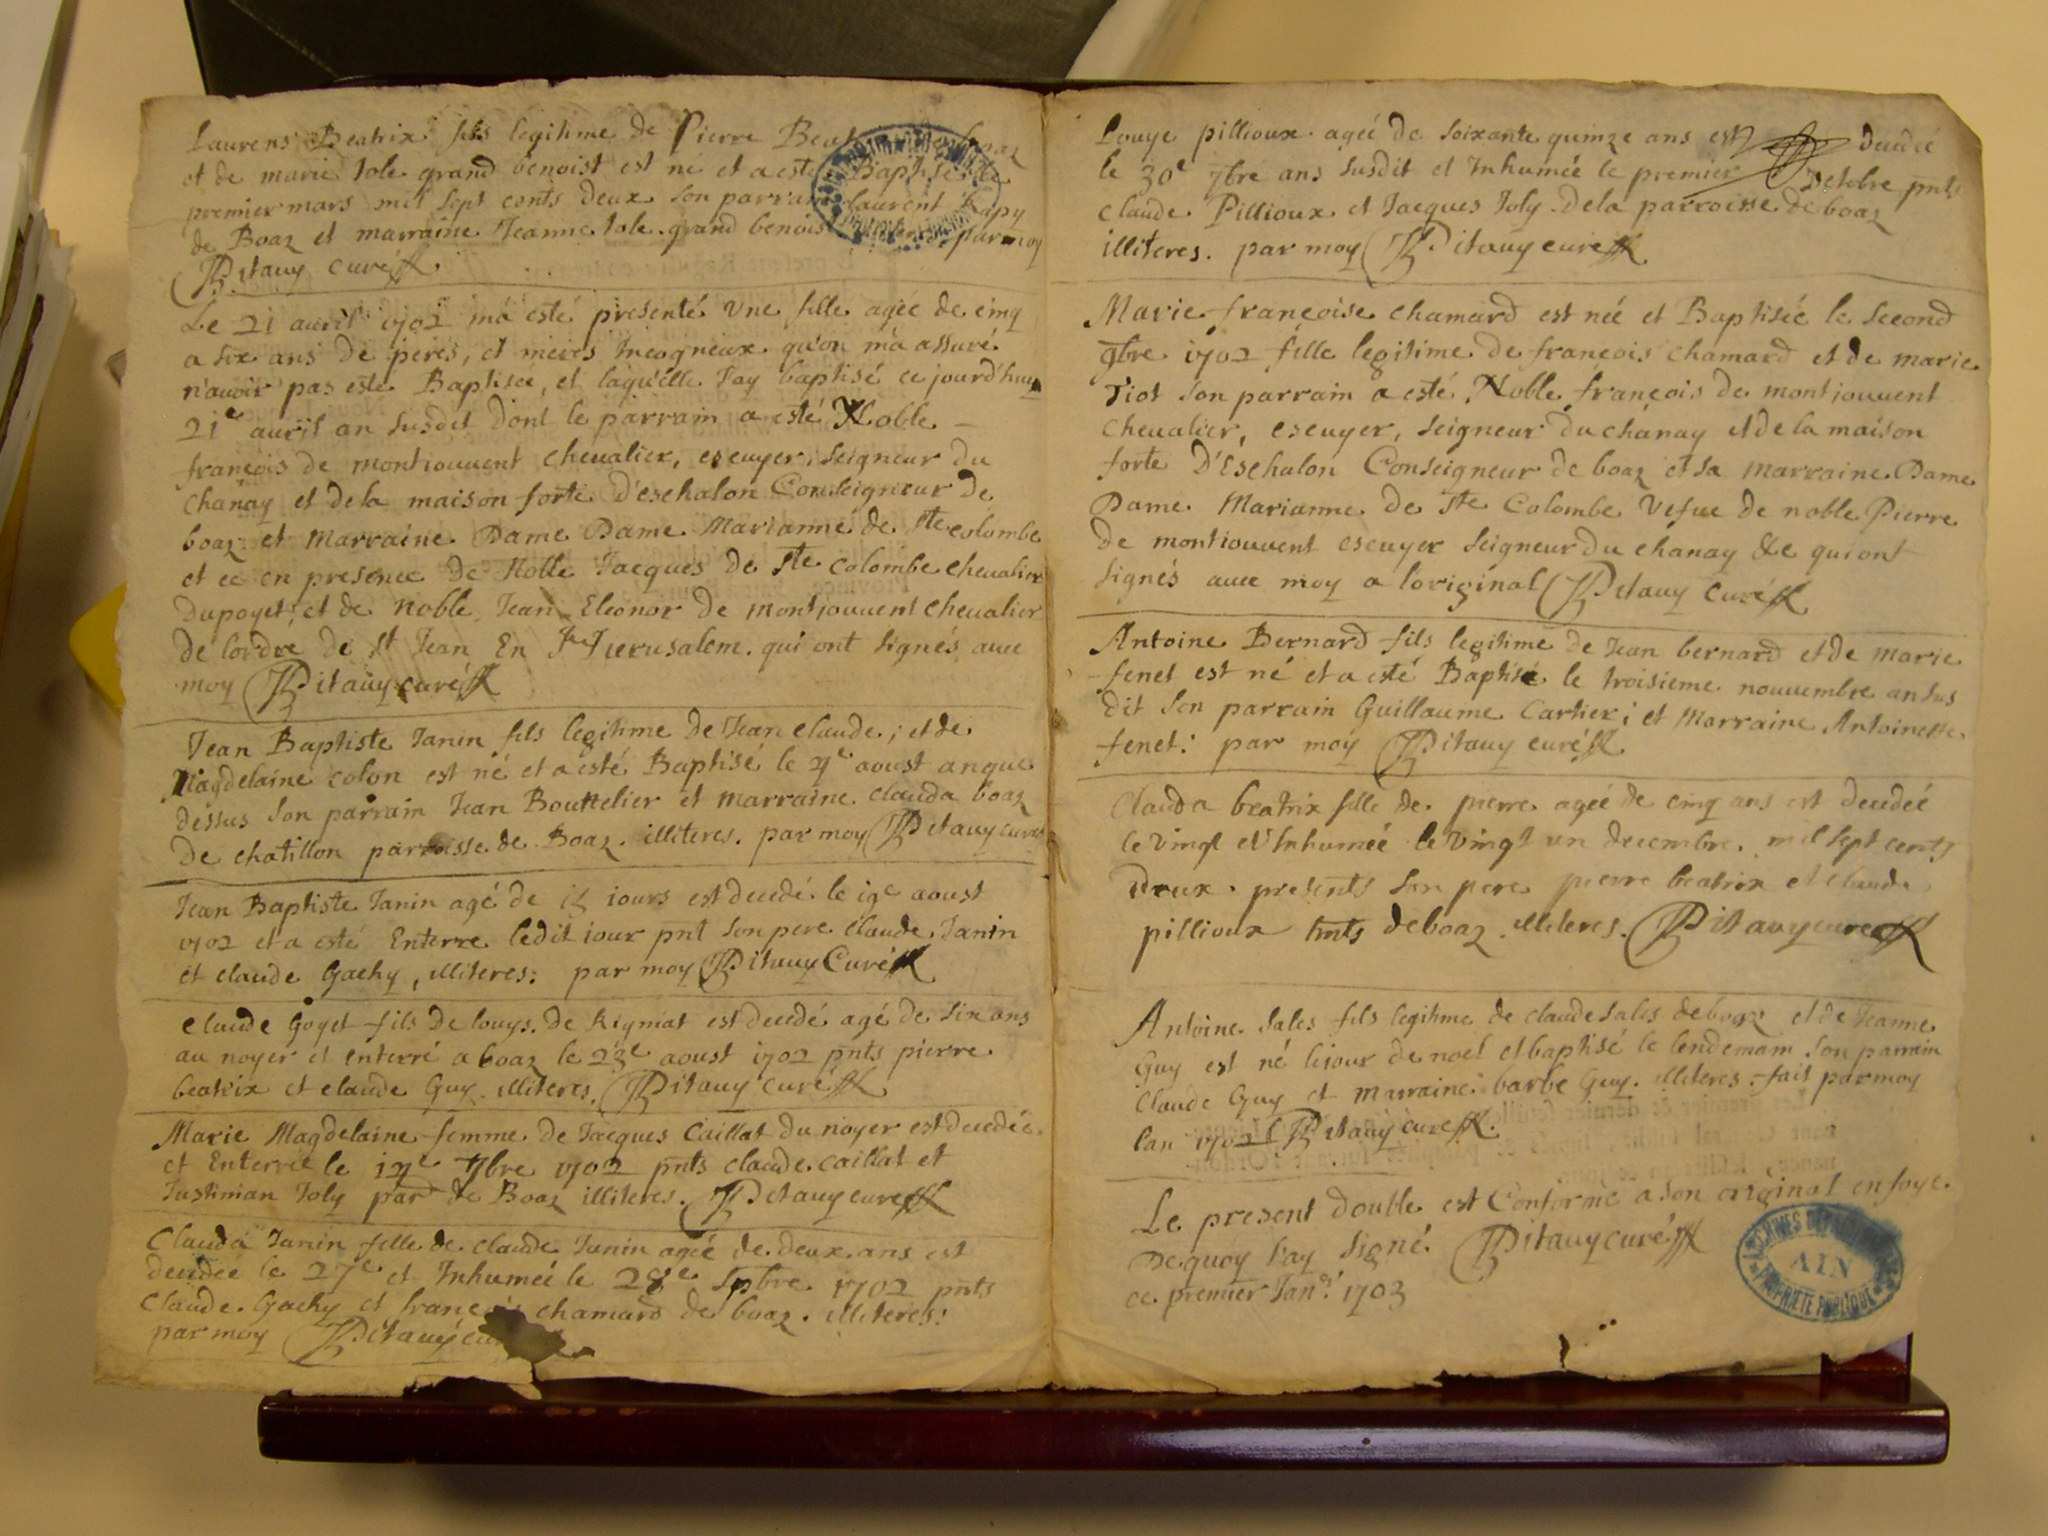 Laurens Beatrix fils legitime de Pierre
et de marie tole grand benoist est né et a esté Baptisé le
premier mars mil sept cents deux son parrain laurent Rapy
de Boaz et marraine Jeanne tole grand benoist par moy
Pitauy curé
Le 21 auril 1702 m'a esté presenté vne fille agée de cinq
a six ans de peres, et meres Incogneux qu'on m'a assuré
n'auoir pas esté Baptisée, et laquelle Jay baptisé ce jourd'huy
21e auril an susdit dont le parrain a esté Noble
françois de montiouuent cheualier, escuyer, seigneur du
chanay et de la maison forte d'eschalon Conseigneur de
boaz et Marraine Dame Dame Marianne de Ste colombe
et ce en presence de Noble Jacques de Ste colombe cheualier
dupoyet, et de noble Jean Eleonor de montjouuent cheualier
de lordre de st Jean En Jerusalem. qui ont signés auec
moy Pitauy curé
Jean Baptiste Janin fils legitime de Jean claude; et de
Magdelaine colon est né et a esté Baptisé le 4e aoust an que
dessus son parrain Jean Bouttelier et marraine clauda boaz
de chatillon parroisse de Boaz. illiteres. par moy Pitauy curé
Jean Baptiste Janin agé de 15 iours est decedé le 19e aoust
1702 et a esté Enterre ledit iour pnt son pere claude Janin
et claude Gachy, illiteres: par moy Pitauy Curé
claude Goyet fils de louys de Rigniat est decedé agé de six ans
au noyer et enterré a boaz le 23e aoust 1702 pnts pierre
beatrix et claude Guy. illiteres. Pitauy curé
Marie Magdelaine femme de Jacques Caillat du noyer est decedée
et Enterrée le 14e 7bre 1702 pnts claude caillat et
Justinian Joly par de Boaz illiteres. Pitauy curé
Clauda Janin fille de claude Janin agée de deux ans est
decedee le 27e et Inhumée le 28e 7bre 1702 pnts
claude Gachy et françois chamard de boaz. illiteres:
par moy Pitauy
Louyse pillioux agée de soixante quinze ans est decedée
le 30e 7bre ans susdit et Inhumée le premier octobre pnts
claude Pillioux et Jacques Joly de la parroisse de boaz
illiteres. par moy Pitauy curé
Marie françoise chamard est née et Baptisée le second
9bre 1702 fille legitime de françois chamard et de marie
Tiot son parrain a esté Noble françois de montiouuent
cheualier, escuyer, seigneur du chanay et de la maison
forte D'Eschalon Conseigneur de boaz et sa marraine Dame
Dame Marianne de Ste Colombe Vefue de noble Pierre
de montiouuent escuyer seigneur du chanay &c qui ont
signés auec moy a l'original Pitauy curé
Antoine Bernard fils legitime de Jean bernard et de marie
fenet est né et a esté Baptisé le troisieme nouuembre an sus
dit son parrain Guillaume Cartier; et Marraine Antoinette
fenet: par moy Pitauy curé
Clauda beatrix fille de pierre agée de cinq ans est decedeé
le vingt et Inhumée le vingt un decembre mil sept cents
deux. presents son pere pierre beatrix et claude
pillioux deboaz. illiteres. Pitauy curé
Antoine Sales fils legitime de claude Sales deboaz et de Jeanne
Guy est né le iour de noel et baptisé le lendemain son parrain
Claude Guy et marraine barbe Guy. illiteres. fait par moy
lan 1702 Pitauy curé
Le present double est Conforme a son original en foye
De quoy J'ay signé Pitauy curé
ce premier Janer 1703
ARCHIVES DEPARTEMENTALES
AIN
PROPRIÉTÉ PUBLIQUE